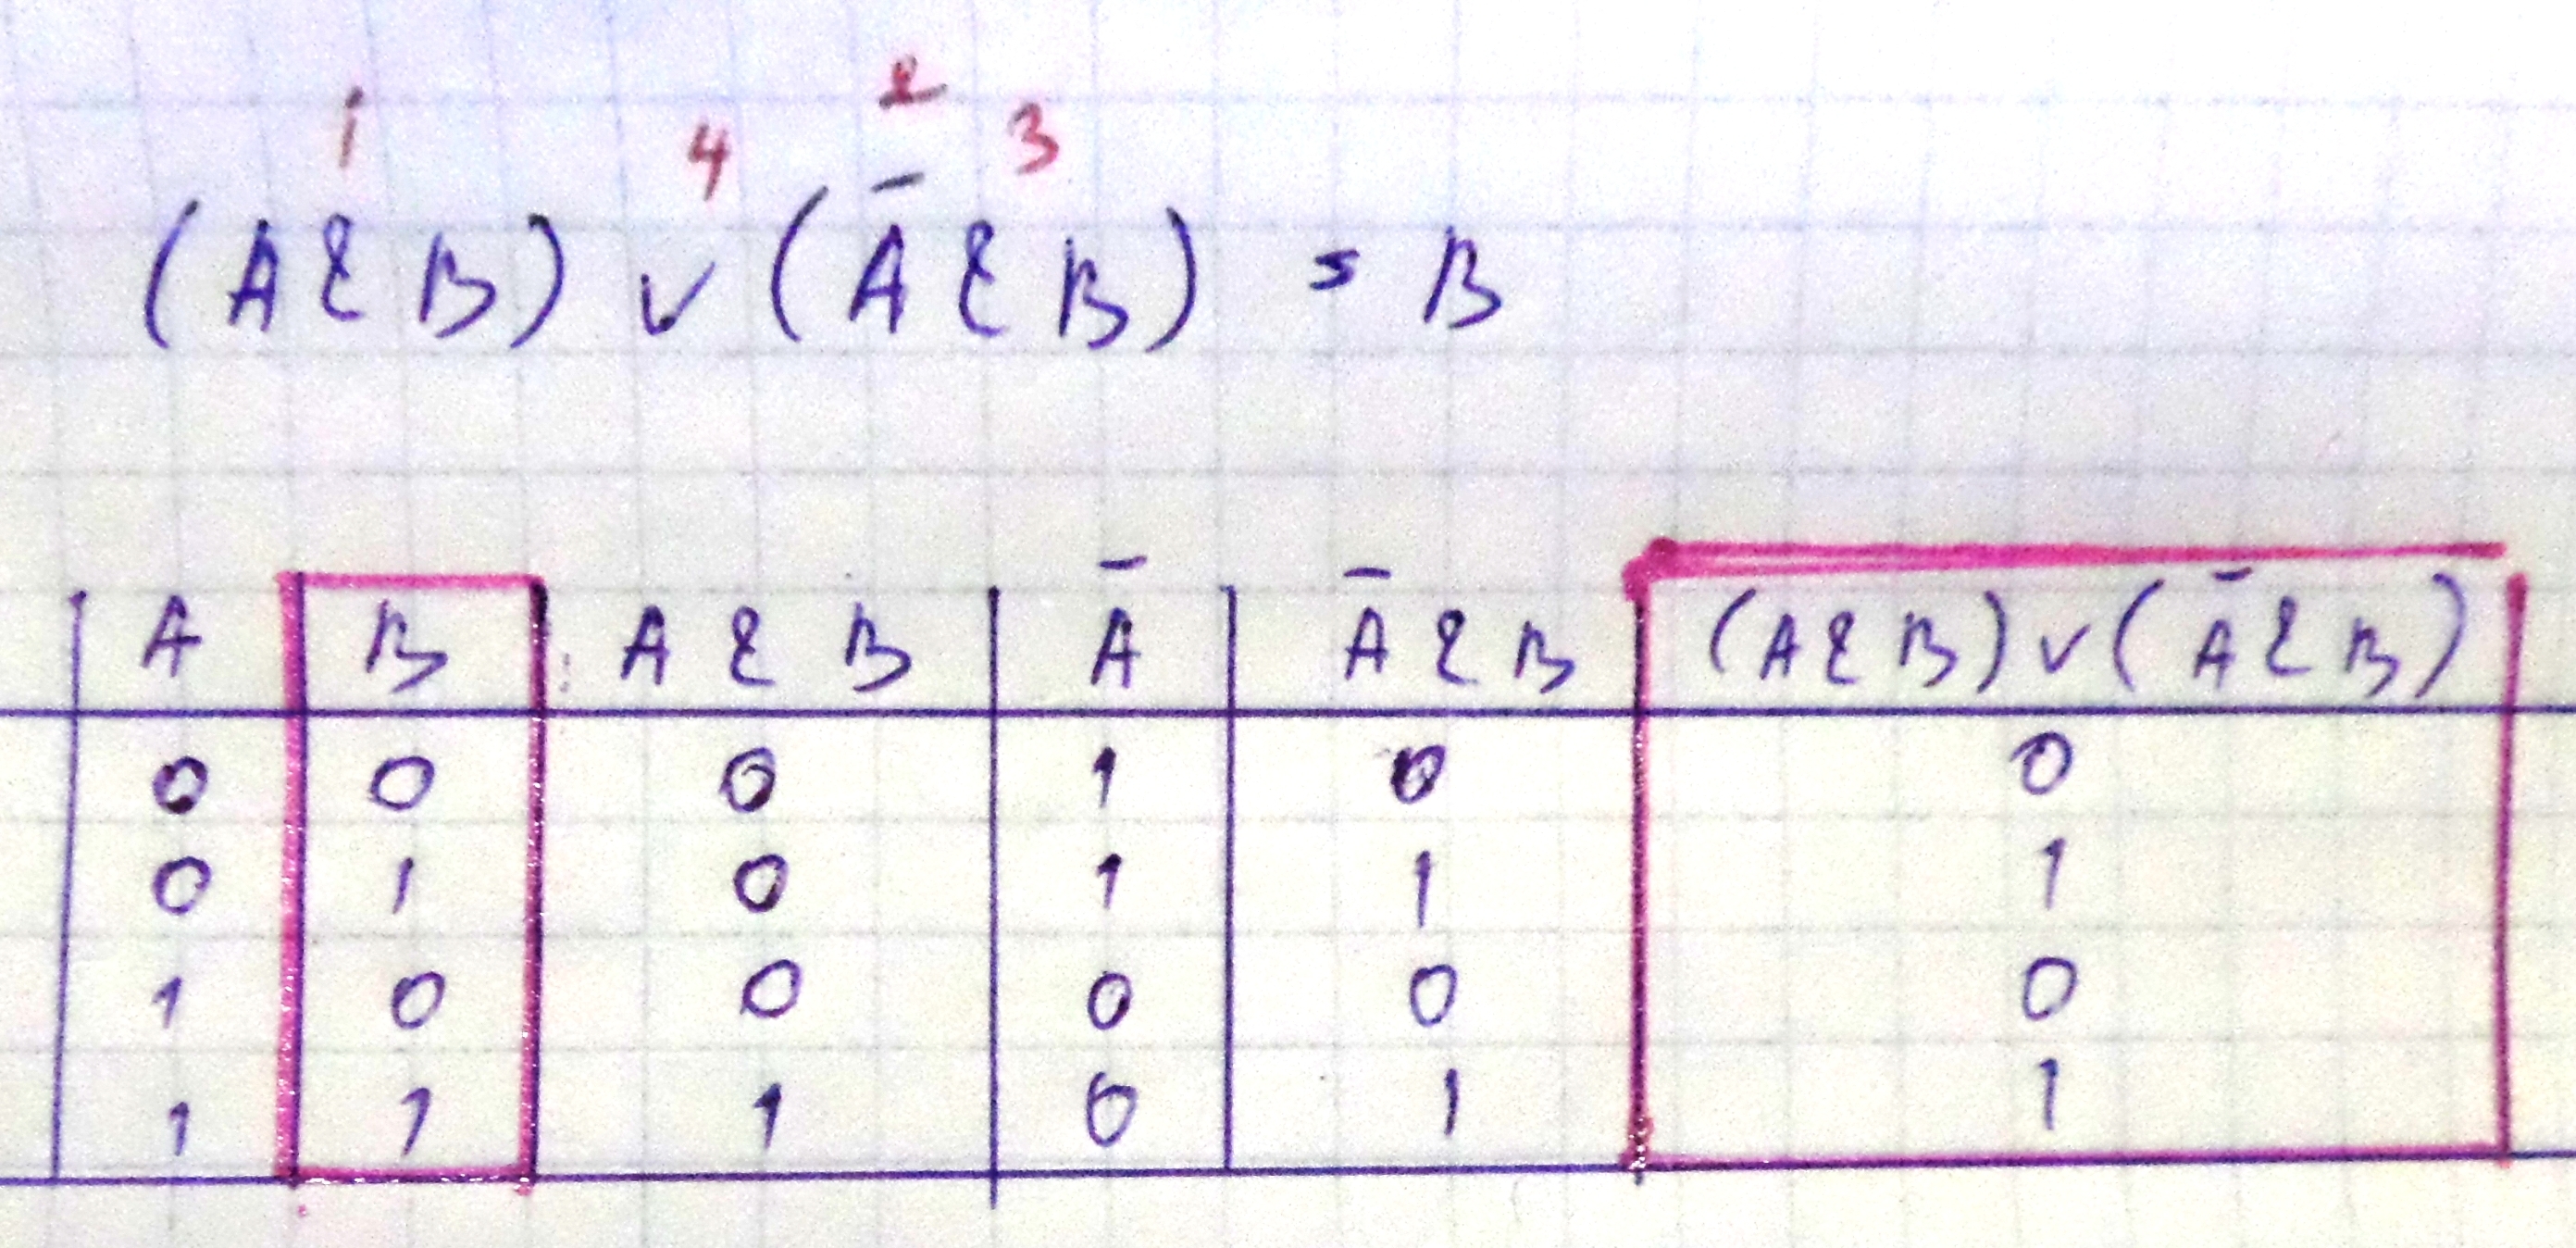 1 4 2 3
(A & B) ∨ (Ā & B) = B
A B A & B Ā Ā & B (A & B) ∨ (Ā & B)
0 0 0 1 0 0
0 1 0 1 1 1
1 0 0 0 0 0
1 1 1 0 1 1